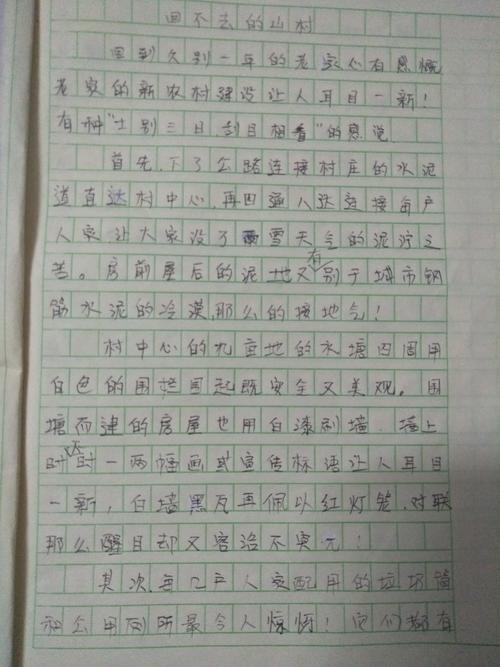 回不去的山村
回到久别一年的老家心有感慨
老家的新农村建设让人耳目一新!
有种"士别三日,刮目相看"的感觉.
首先,下了公路连接村庄的水泥
道直达村中心,再四通八达连接每户
人家,让大家没了雨雪天气的泥泞之
苦。房前屋后的泥土地又有别于城市钢
筋水泥的冷漠,那么的接地气!
村中心的九亩地的水塘四周用
白色的围拦围起既安全又美观。围
塘而建的房屋也用白漆刷墙.墙上
时还时一两幅画或宣传标语让人耳目
一新,白墙黑瓦再佩以红灯笼.对联
那么醒目却又容洽不突兀!
其次,每户人家配用的垃圾筒
和公用厕所最令人惊讶!它们都有